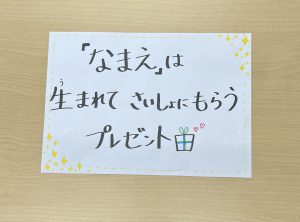 「なまえ」は
生まれて さいしょにもらう
プレゼント